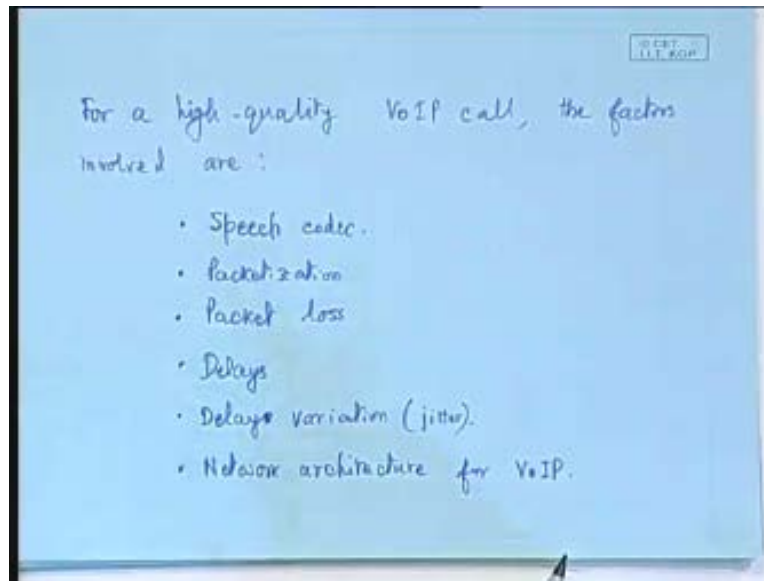 © CET
I.I.T. KGP
For a high-quality VoIP call, the factors
involved are :
• Speech codec.
• Packetization
• Packet loss
• Delays
• Delays variation (jitter).
• Network architecture for VoIP.